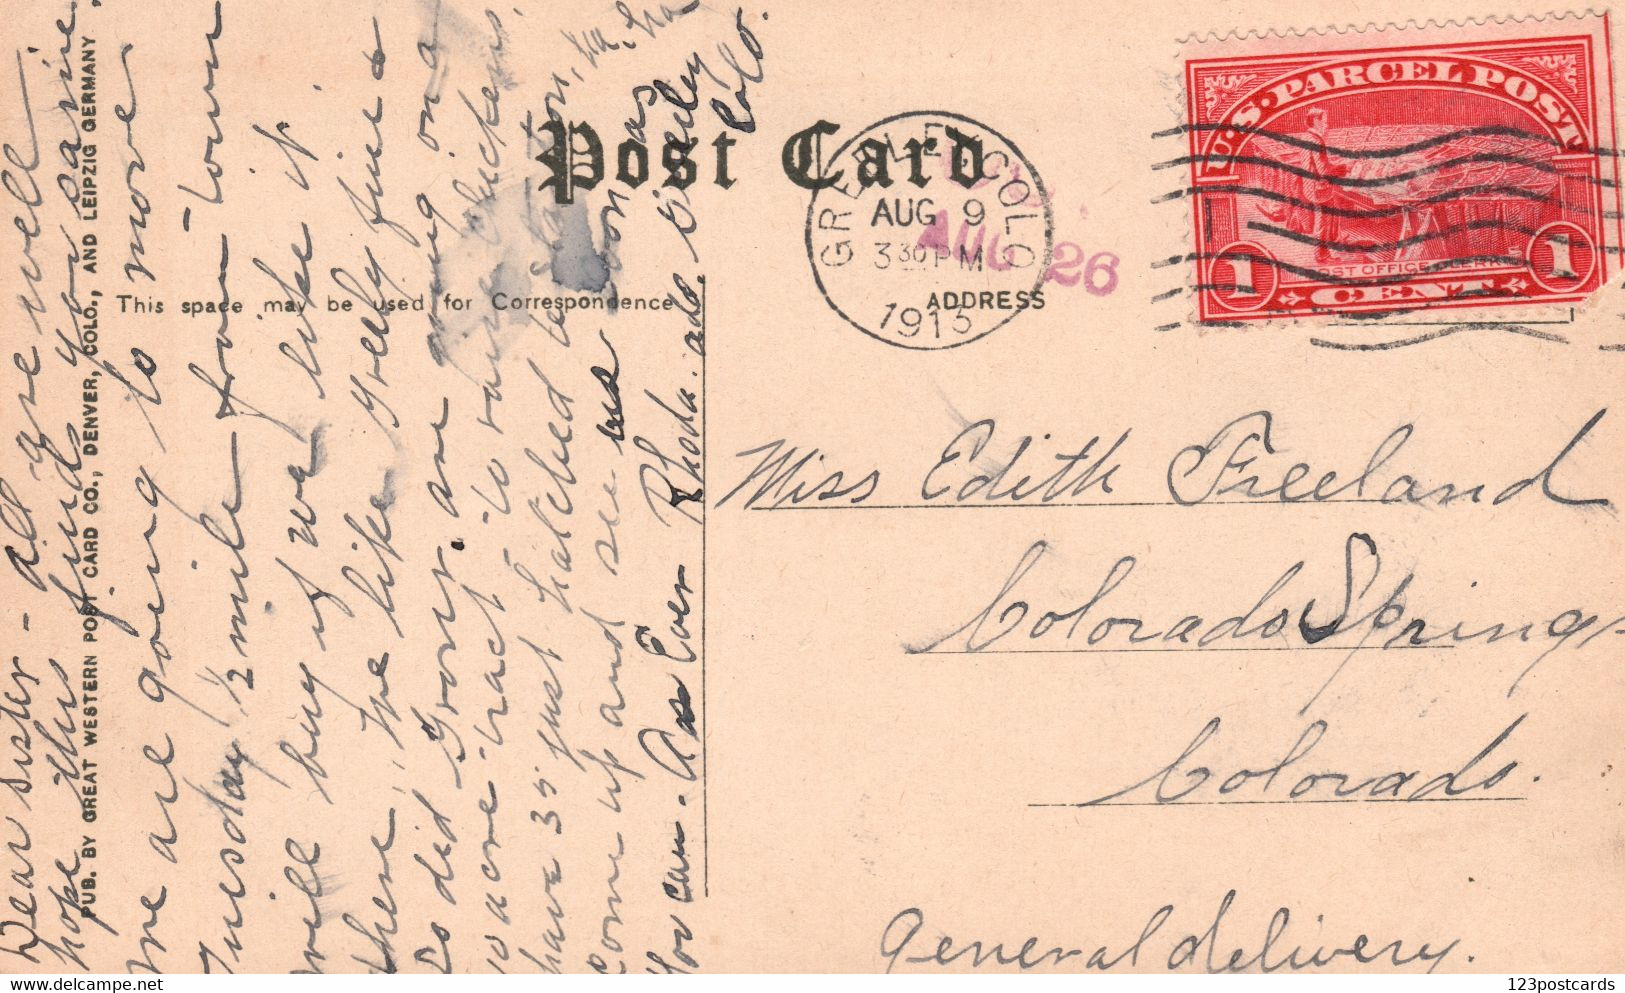 Dear sister - all are well
hope this finds you same.
We are going to move
Tuesday 1/2 mile from town
will buy if we like it
there, We like Greely fine &
so did Grover. are going on a
10 acre tract to raise chickens.
have 35 just hatched to start on, ha, ha
Come up and see us soon as
You can. As Ever Rhoda. ads. Greeley
Colo.
PUB. BY GREAT WESTERN POST CARD CO., DENVER, COLO., AND LEIPZIG GERMANY
Post Card
This space may be used for Correspondence
ADDRESS
GREELEY COLO
AUG 9
3 30 PM
1913
AUG 26
U.S. PARCEL POST
1 POST OFFICE CLERK 1
CENT
Miss Edith Freeland
Colorado Springs
Colorado.
General delivery.
123postcards